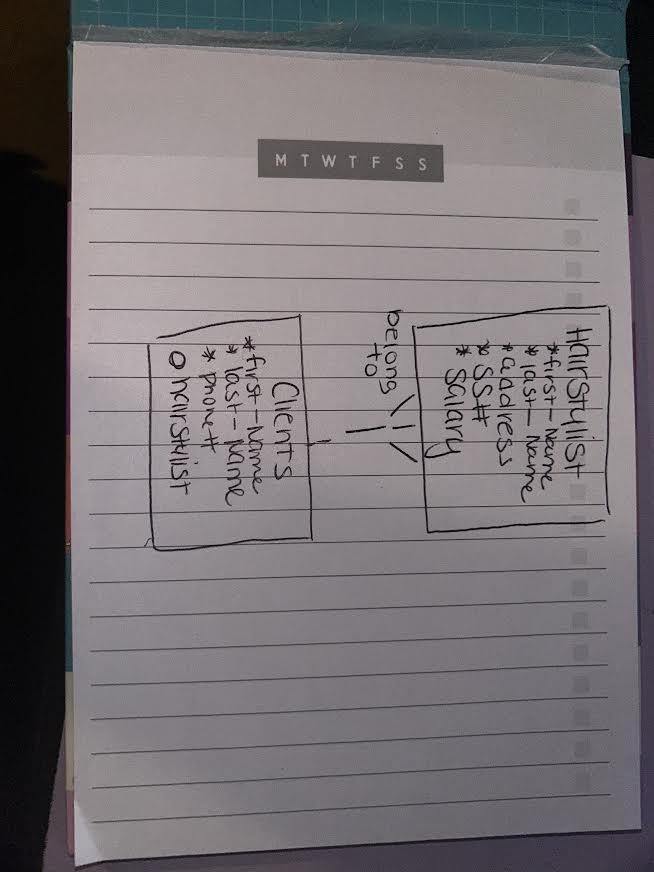 M T W T F S S
Hairstylist
*first-Name
*last-Name
*address
*SS#
*Salary
belong
to
Clients
*first-Name
*last-Name
*phone#
O hairstylist